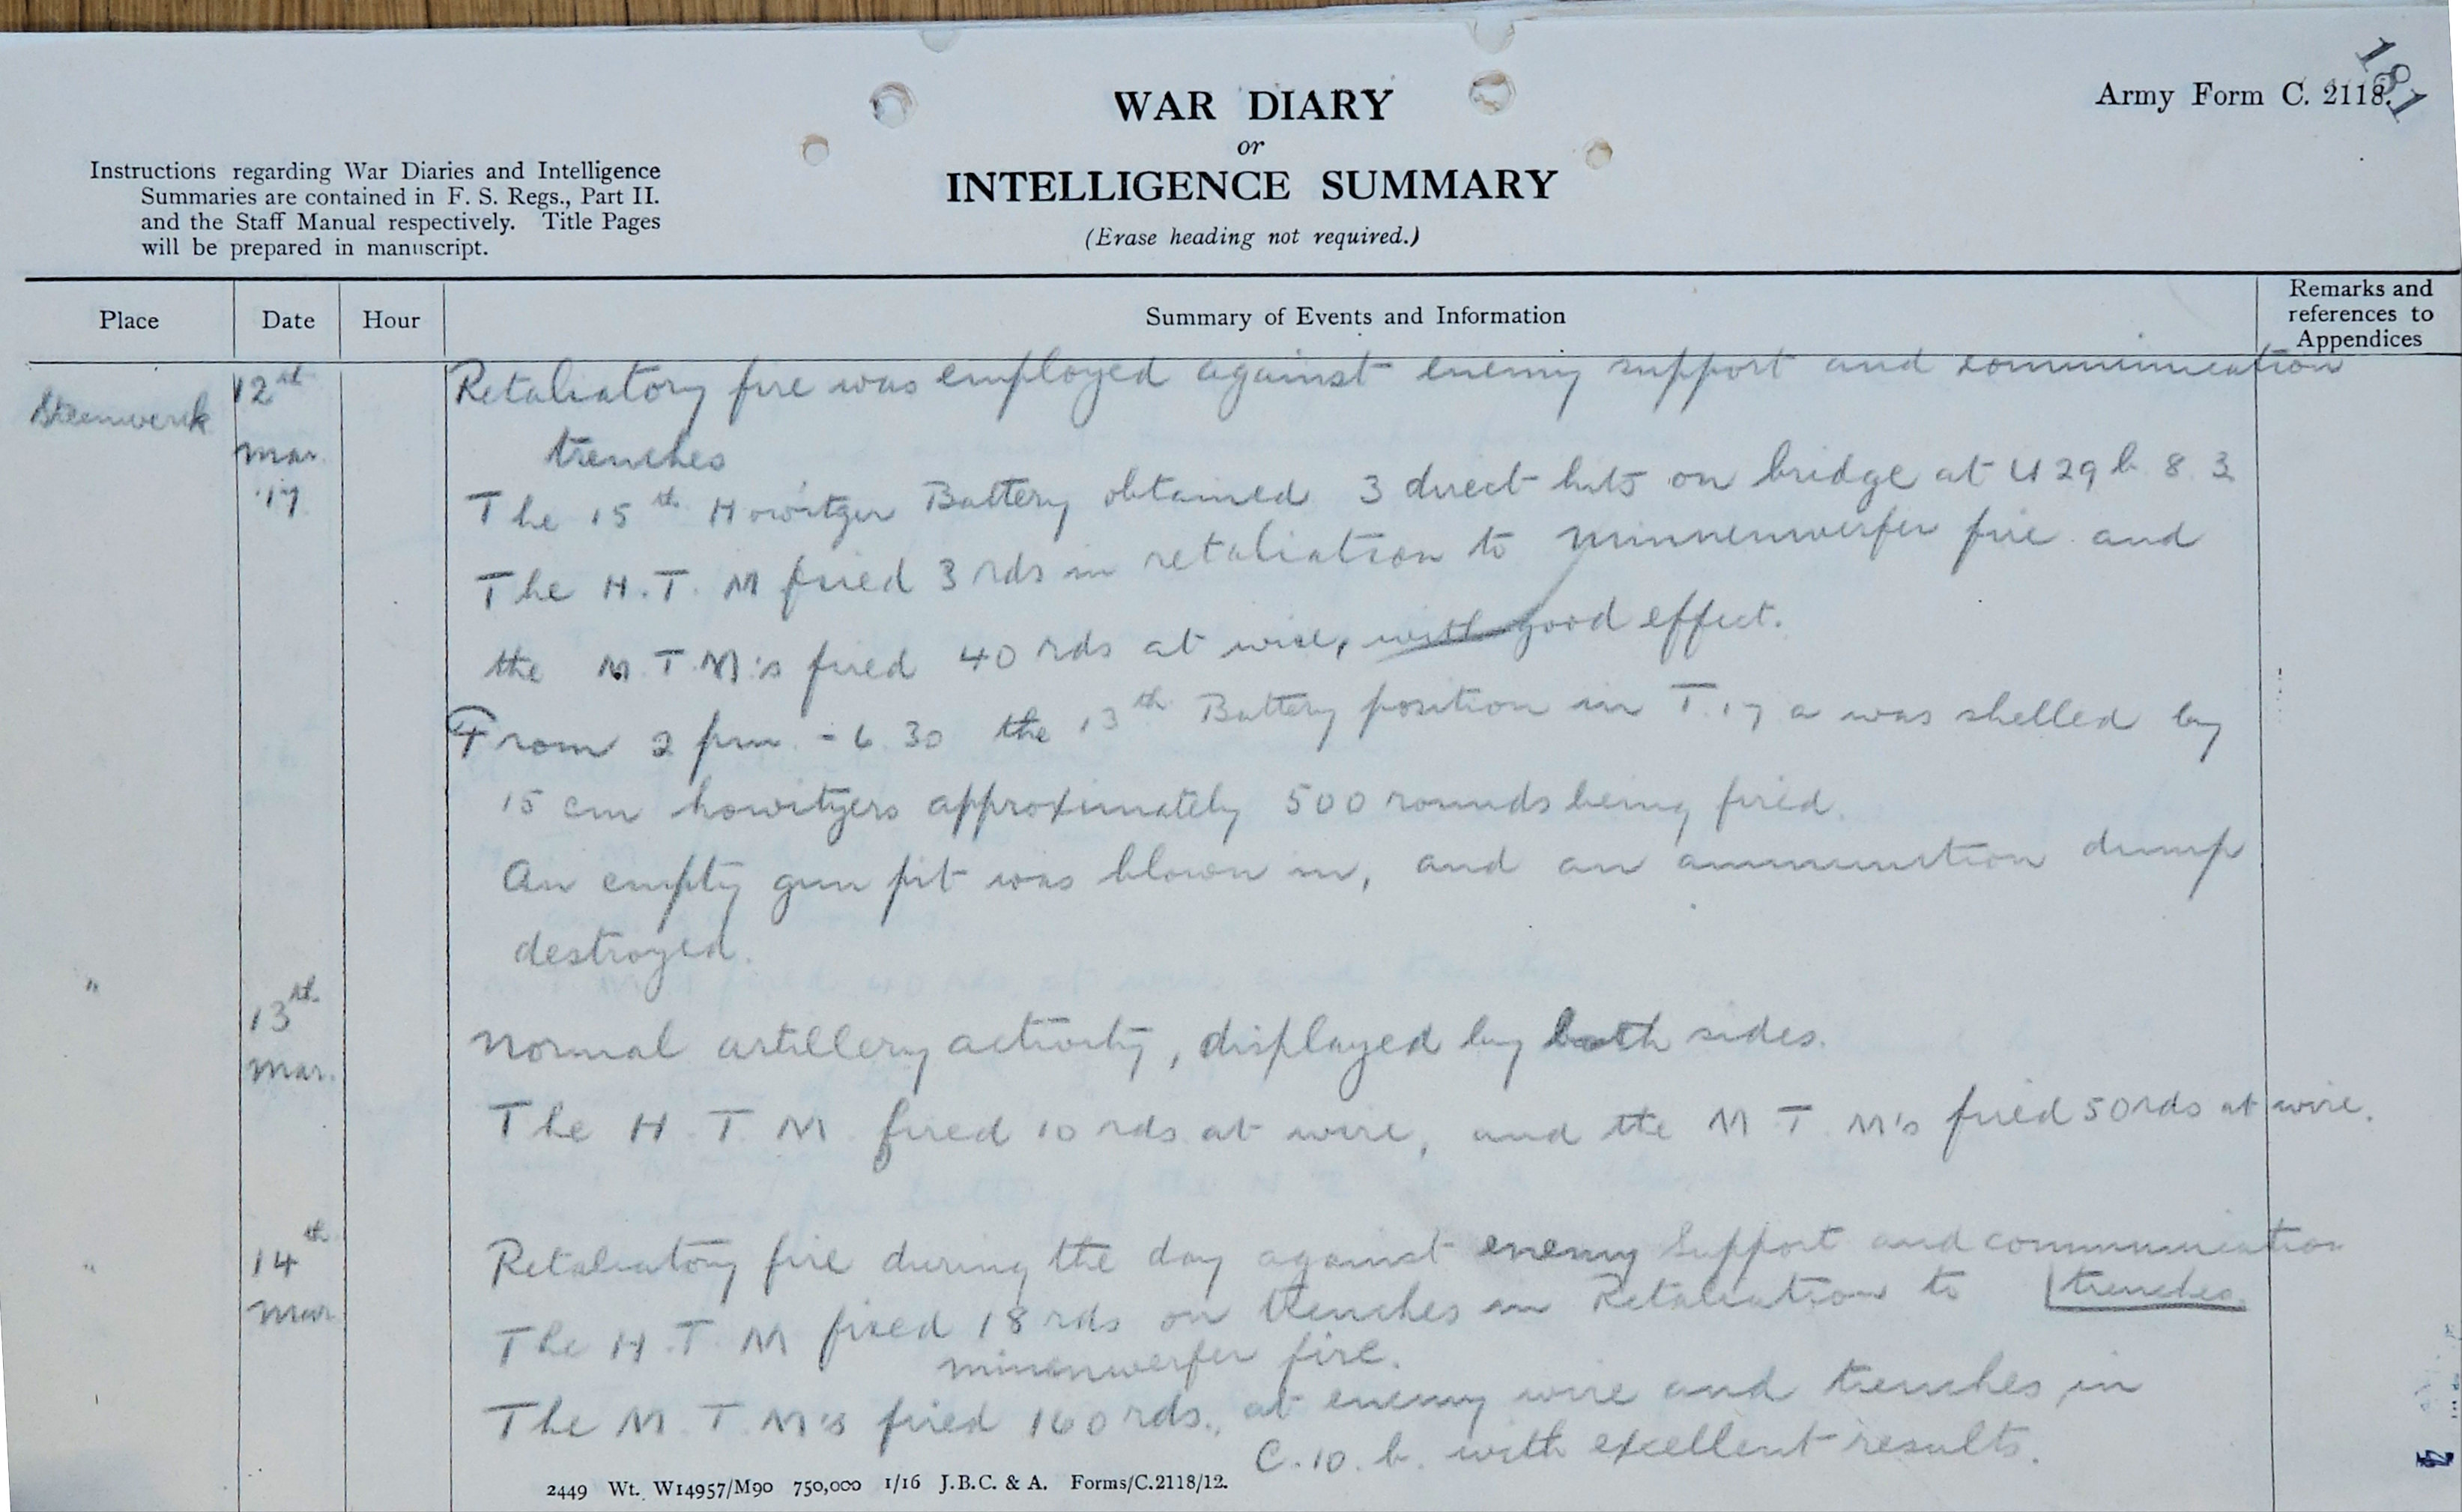 181
Army Form C. 2118.
WAR DIARY
or
INTELLIGENCE SUMMARY
(Erase heading not required.)
Instructions regarding War Diaries and Intelligence
Summaries are contained in F. S. Regs., Part II.
and the Staff Manual respectively. Title Pages
will be prepared in manuscript.
Place Date Hour Summary of Events and Information Remarks and
references to
Appendices
Steenwerk 12th Retaliatory fire was employed against enemy support and communication
mar. trenches
'17 The 15th Howitzer Battery obtained 3 direct hits on bridge at U 29 b 8 3
The H.T.M fired 3 rds in retaliation to minnenwerfer fire and
the M.T.M's fired 40 rds at wire, with good effect.
From 2 pm - 6.30 the 13th Battery position in T.17 a was shelled by
15 cm howitzers approximately 500 rounds being fired.
An empty gun pit was blown in, and an ammunition dump
destroyed.
" 13th
Mar. Normal artillery activity, displayed by both sides.
The H.T.M. fired 10 rds at wire, and the M T M's fired 50 rds at wire.
" 14th Retaliatory fire during the day against enemy Support and communication
Mar trenches.
The H.T.M fired 18 rds on trenches in Retaliation to
minenwerfer fire.
The M.T.M's fired 160 rds. at enemy wire and trenches in
C.10.b. with excellent results.
2449 Wt. W14957/M90 750,000 1/16 J.B.C. & A. Forms/C.2118/12.